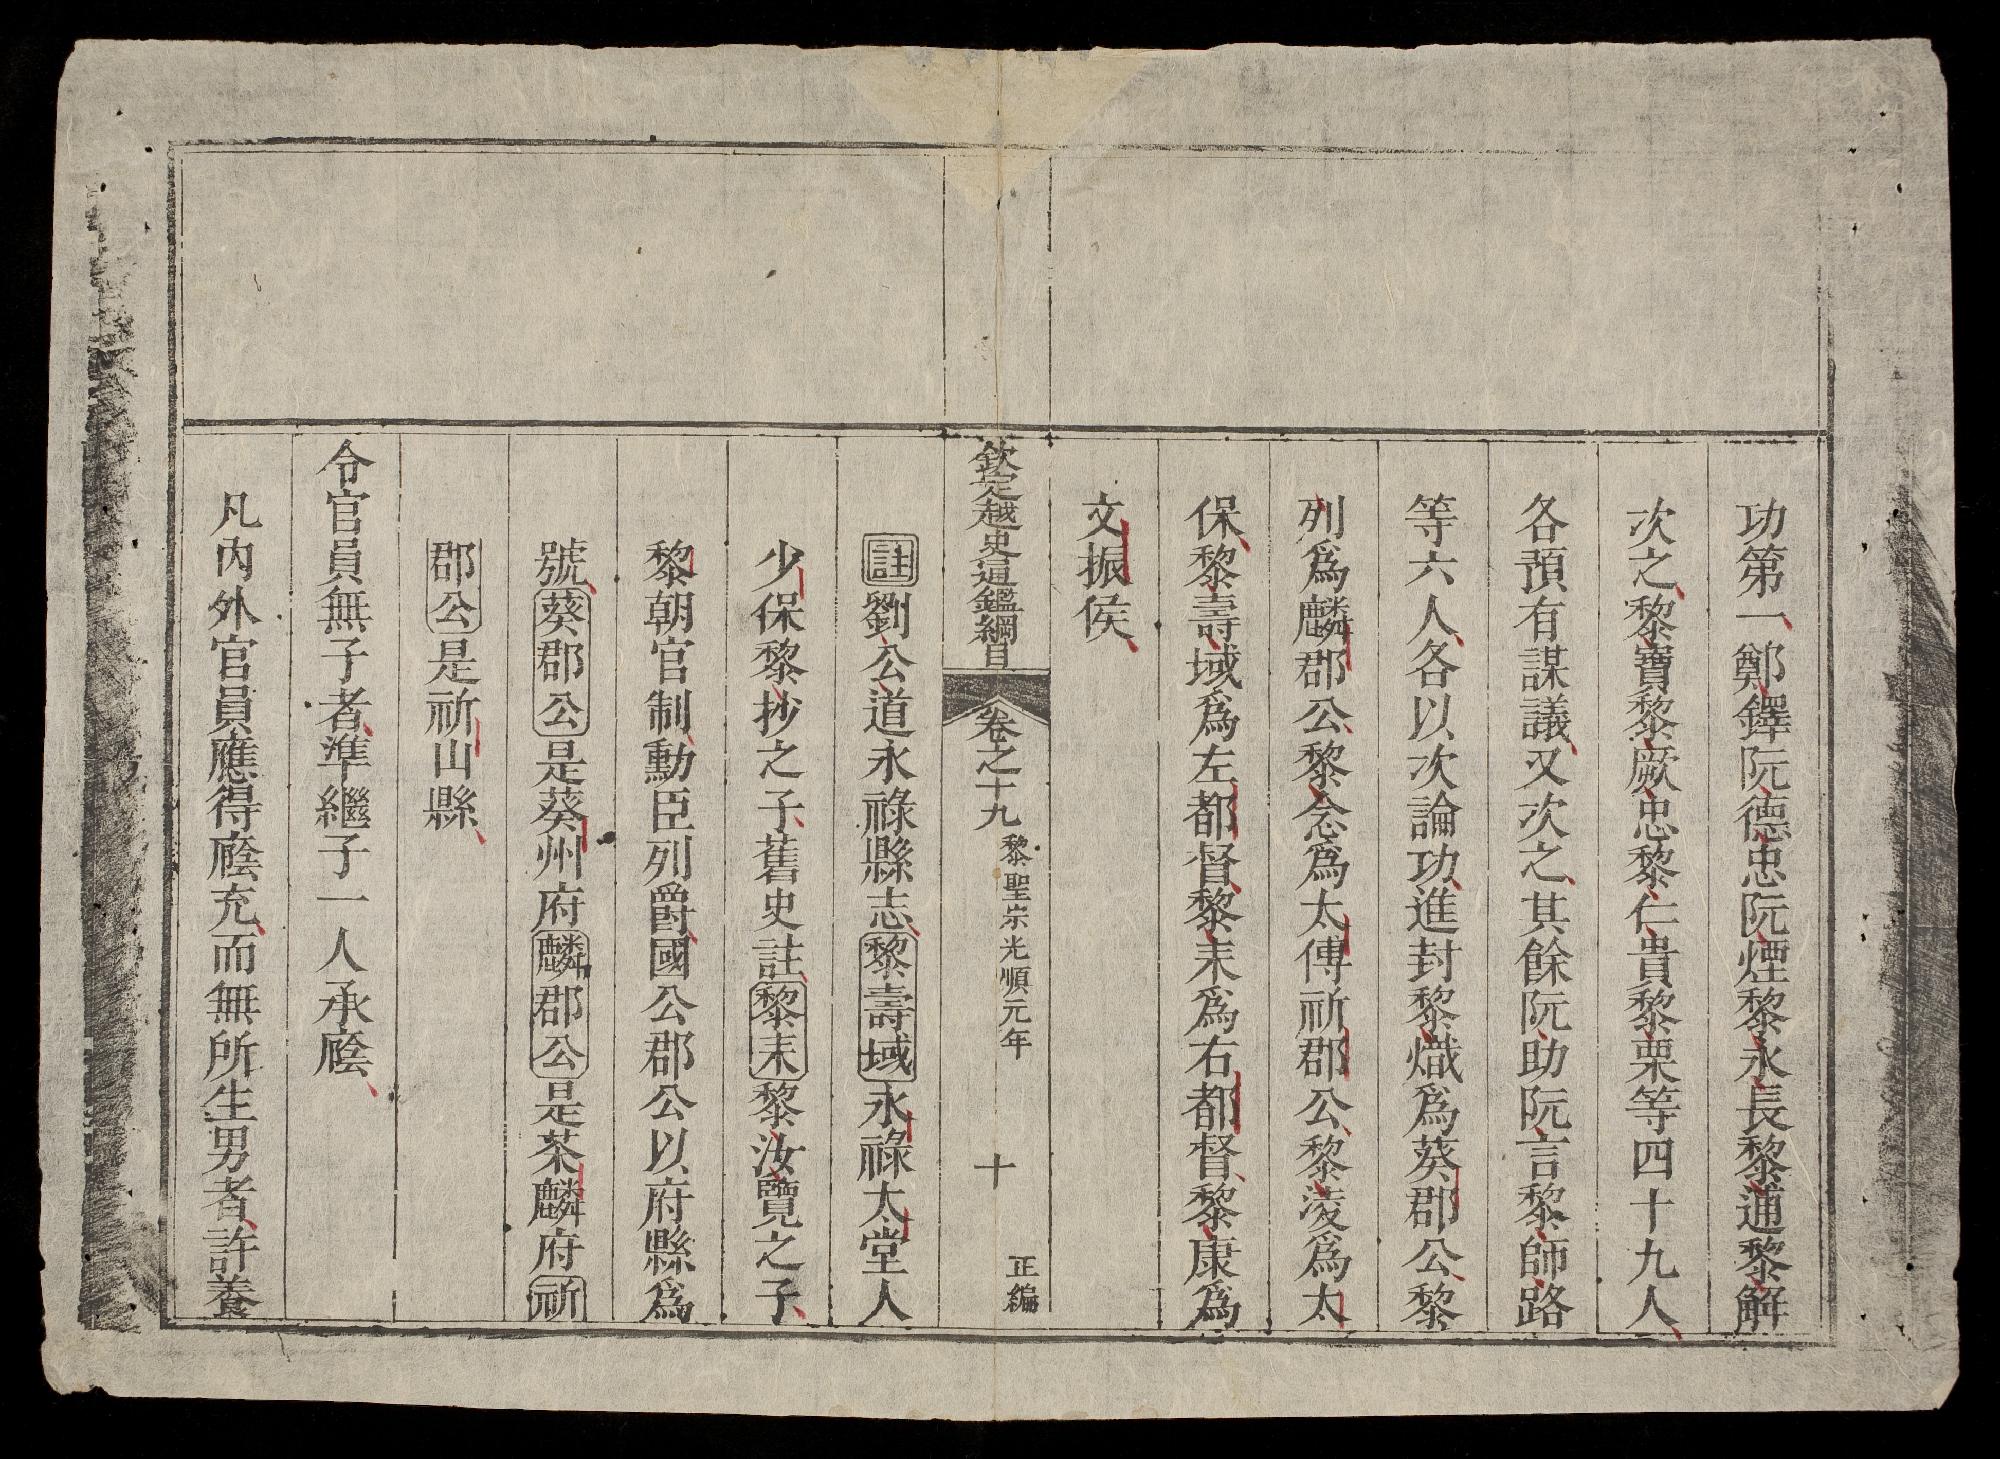 功第一鄭鐸阮德忠阮煙黎永長黎通黎解
次之黎寶黎厥忠黎仁貴黎栗等四十九人
各預有謀議又次之其餘阮助阮言黎師路
等六人各以次論功進封黎熾爲葵郡公黎
列爲麟郡公黎念爲太傅祈郡公黎淩爲太
保黎壽域爲左都督黎耒爲右都督黎康爲
文振侯
欽定越史通鑑綱目 卷之十九 黎聖宗光順元年 十 正編
註劉公道永祿縣志黎壽域永祿太堂人
少保黎抄之子舊史註黎耒黎汝覽之子
黎朝官制勳臣列爵國公郡公以府縣爲
號葵郡公是葵州府麟郡公是茶麟府祈
郡公是祈山縣
令官員無子者準繼子一人承廕
凡內外官員應得廕充而無所生男者許養